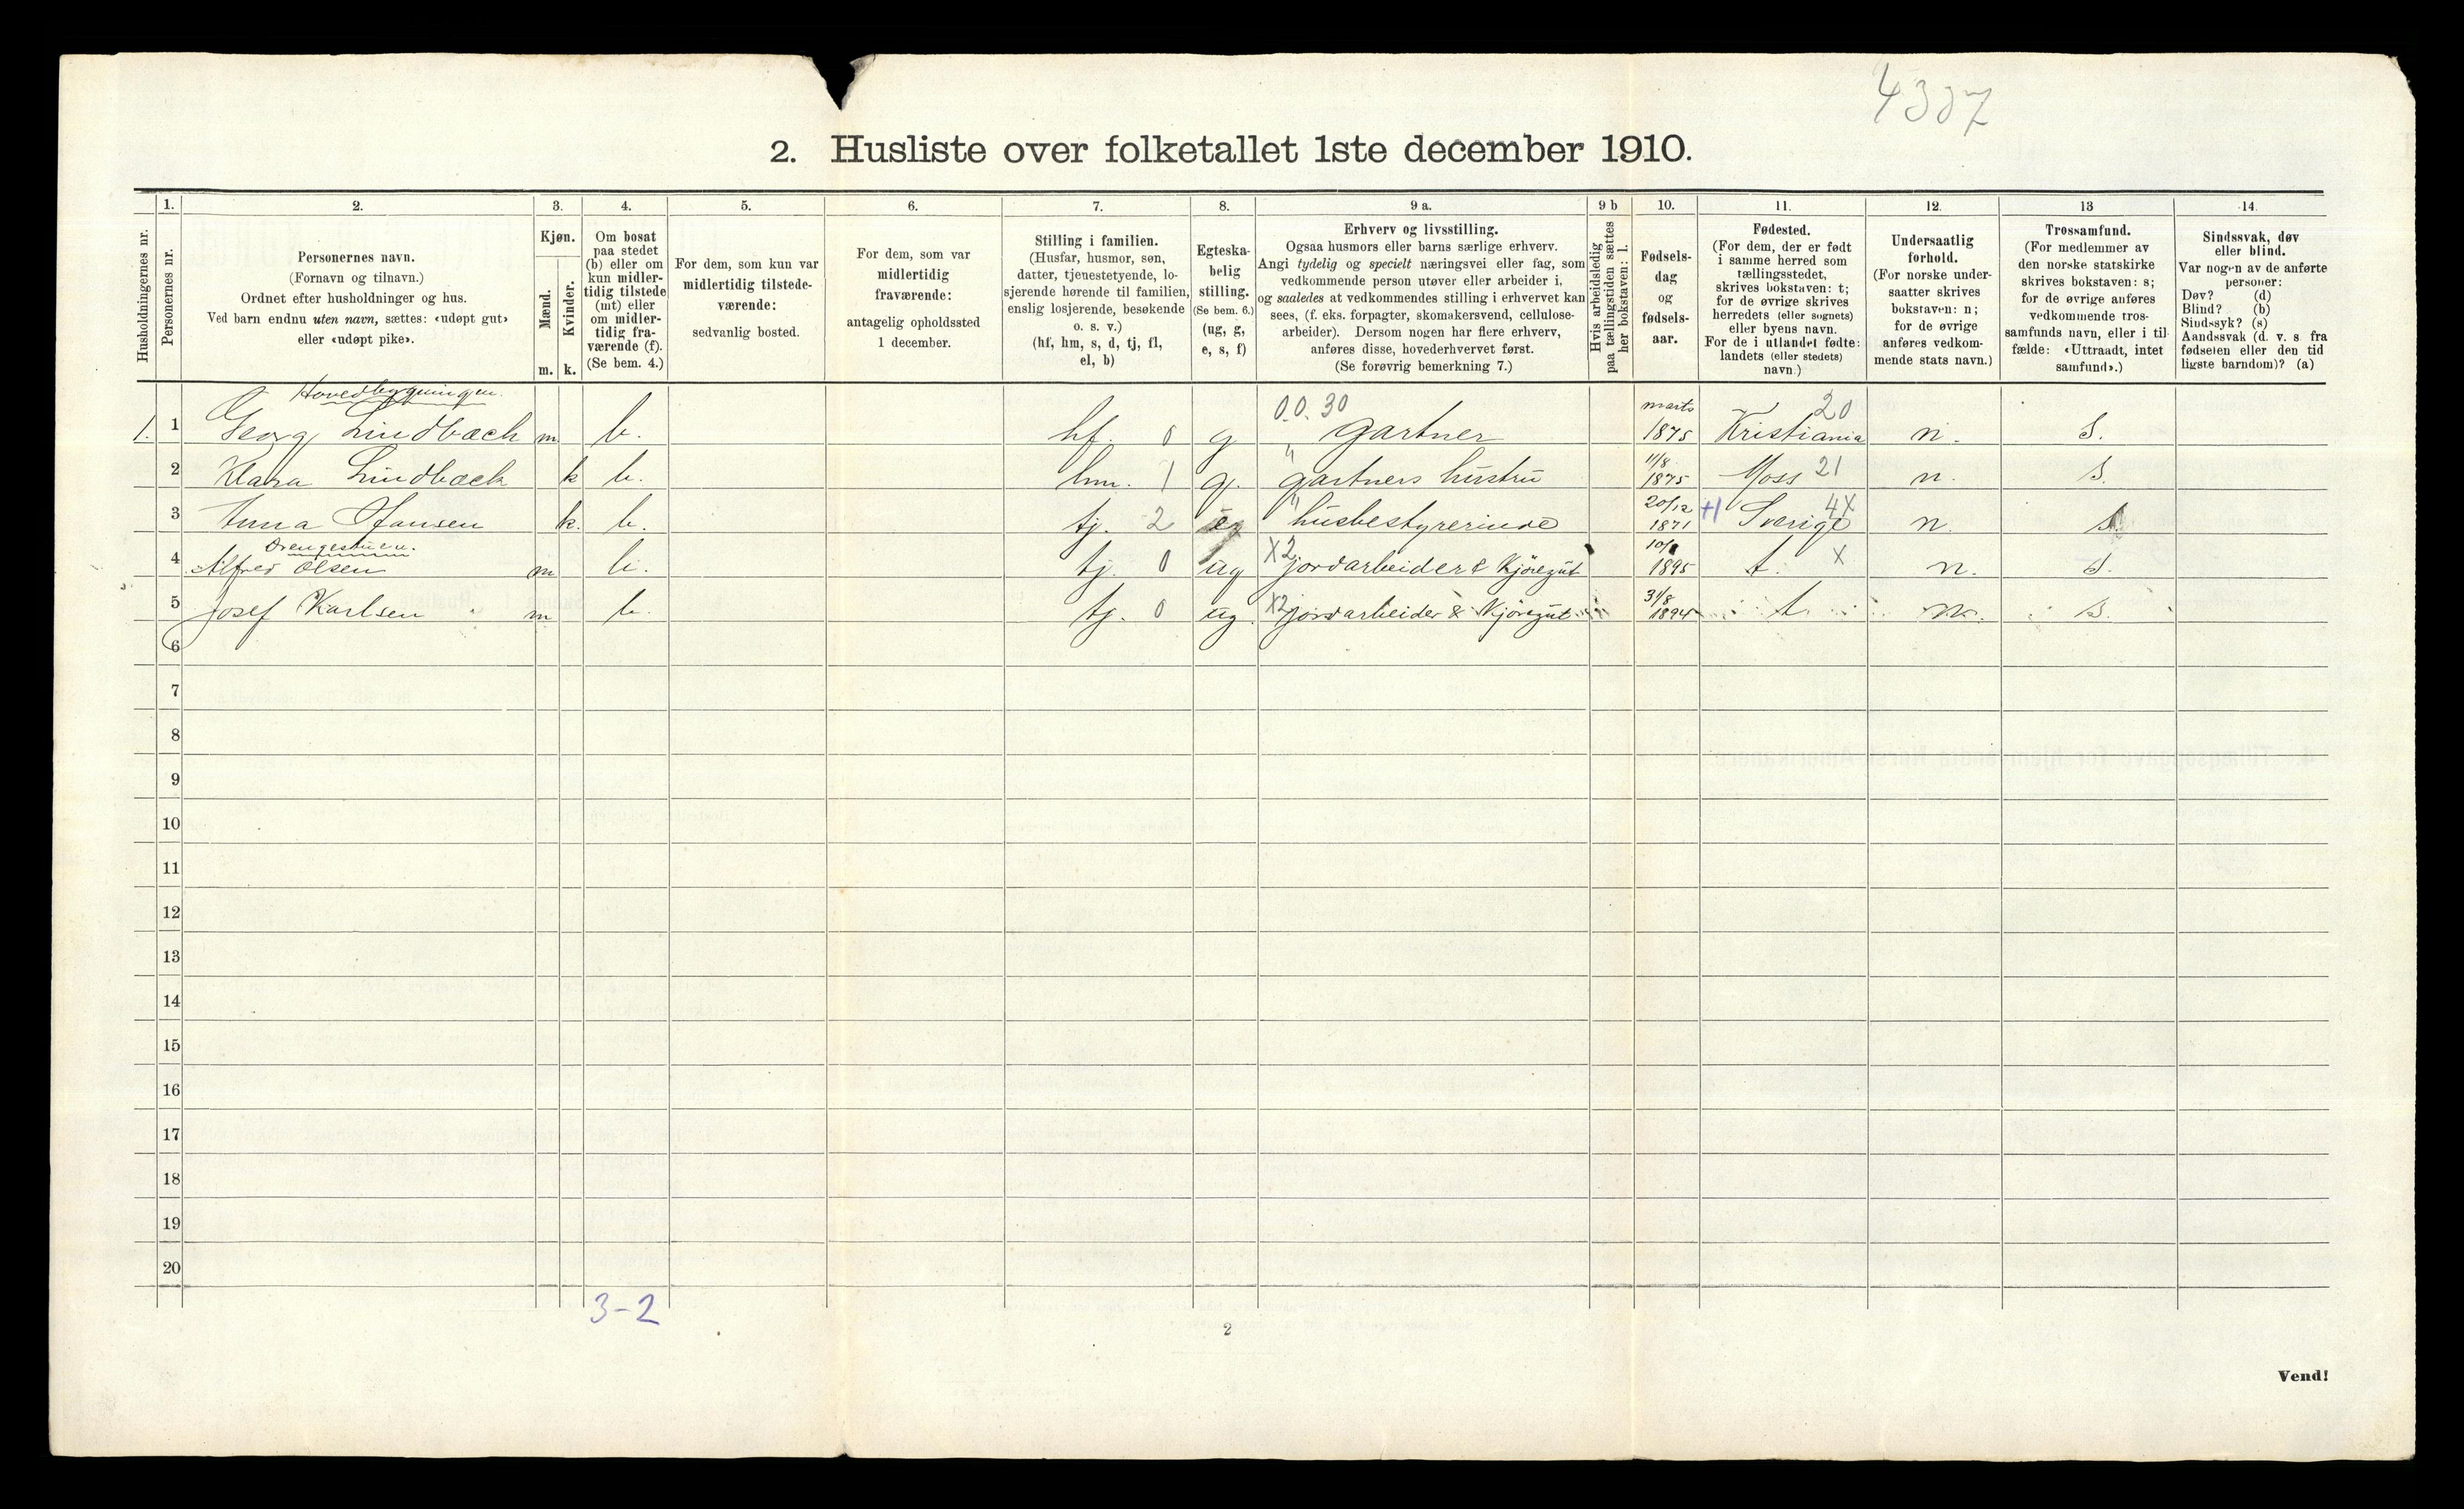 4307
2. Husliste over folketallet 1ste december 1910.
Husholdningernes nr.
1.
Personernes nr.
2.
Personernes navn.
(Fornavn og tilnavn.)
Ordnet efter husholdninger og hus.
Ved barn endnu uten navn, sættes: «udøpt gut»
eller «udøpt pike».
3.
Kjøn.
Mænd.
Kvinder.
m. k.
4.
Om bosat
paa stedet
(b) eller om
kun midler-
tidig tilstede
(mt) eller
om midler-
tidig fra-
værende (f).
(Se bem. 4.)
5.
For dem, som kun var
midlertidig tilstede-
værende:
sedvanlig bosted.
6.
For dem, som var
midlertidig
fraværende:
antagelig opholdssted
1 december.
7.
Stilling i familien.
(Husfar, husmor, søn,
datter, tjenestetyende, lo-
sjerende hørende til familien,
enslig losjerende, besøkende
o. s. v.)
(hf, hm, s, d, tj, fl,
el, b)
8.
Egteska-
belig
stilling.
(Se bem. 6.)
(ug, g,
e, s, f)
9 a.
Erhverv og livsstilling.
Ogsaa husmors eller barns særlige erhverv.
Angi tydelig og specielt næringsvei eller fag, som
vedkommende person utøver eller arbeider i,
og saaledes at vedkommendes stilling i erhvervet kan
sees, (f. eks. forpagter, skomakersvend, cellulose-
arbeider). Dersom nogen har flere erhverv,
anføres disse, hovederhvervet først.
(Se forøvrig bemerkning 7.)
9 b
Hvis arbeidsledig
paa tællingstiden sættes
her bokstaven: l.
10.
Fødsels-
dag
og
fødsels-
aar.
11.
Fødested.
(For dem, der er født
i samme herred som
tællingsstedet,
skrives bokstaven: t;
for de øvrige skrives
herredets (eller sognets)
eller byens navn.
For de i utlandet fødte:
landets (eller stedets)
navn.)
12.
Undersaatlig
forhold.
(For norske under-
saatter skrives
bokstaven: n;
for de øvrige
anføres vedkom-
mende stats navn.)
13
Trossamfund.
(For medlemmer av
den norske statskirke
skrives bokstaven: s;
for de øvrige anføres
vedkommende tros-
samfunds navn, eller i til-
fælde: «Uttraadt, intet
samfund».)
14.
Sindssvak, døv
eller blind.
Var nogen av de anførte
personer:
Døv? (d)
Blind? (b)
Sindssyk? (s)
Aandssvak (d. v. s fra
fødselen eller den tid
ligste barndom)? (a)
Hovedbygningen.
0.0. 30 marts 20
1. 1 Georg Lindbæck m b. hf. 0 g gartner 1875 Kristiania n. s.
2 Klara Lindbæck k b. hm. 1 g. " gartners hustru 11/8 1875 Moss 21 n. s.
3 Anna Hansen k. b. tj. 2 " husbestyrerinde 20/12 1871 +1 Sverige 4X n. s.
Drengestuen.
4 Alfred Olsen m b. tj. 0 ug X2 jordarbeider & Kjøregut 1895 t. X n. s.
5 Josef Karlsen m b. tj. 0 ug. X2 jordarbeider & Kjøregut 31/8 1894 t n. s.
6
7
8
9
10
11
12
13
14
15
16
17
18
19
20
3-2
2
Vend!